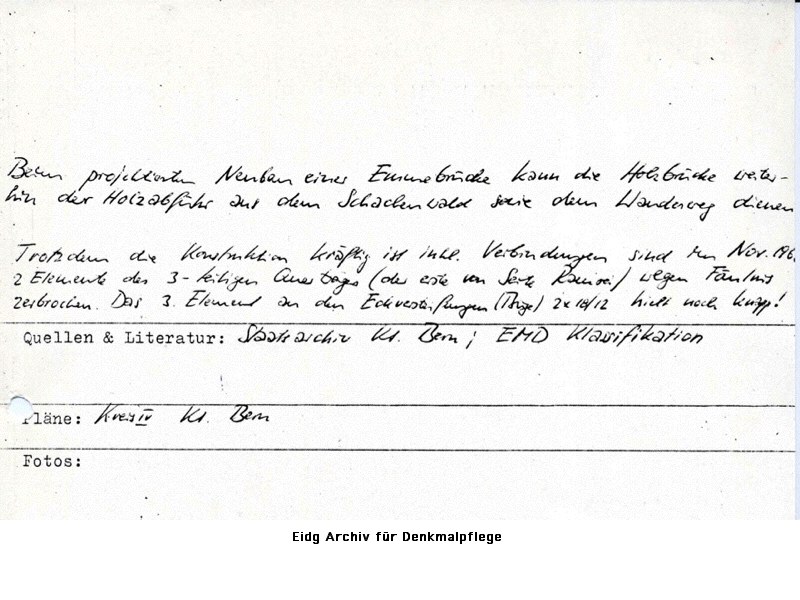 Beim projektierten Neubau einer Emmebrücke kann die Holzbrücke weiter-
hin der Holzabfuhr aus dem Schachenwald sowie dem Wanderweg dienen
Trotzdem die Konstruktion kräftig ist inkl. Verbindungen sind im Nov. 196
2 Elemente des 3-teiligen Querträger (der erste von Seite Ramsei) wegen Fäulnis
zerbrochen. Das 3. Element an den Eckverstärkungen 2x18/12 hielt noch knapp!
Quellen & Literatur: Staatsarchiv Kt. Bern; EMD Klassifikation
läne: Kreis IV Kt. Bern
Fotos:
Eidg Archiv für Denkmalpflege